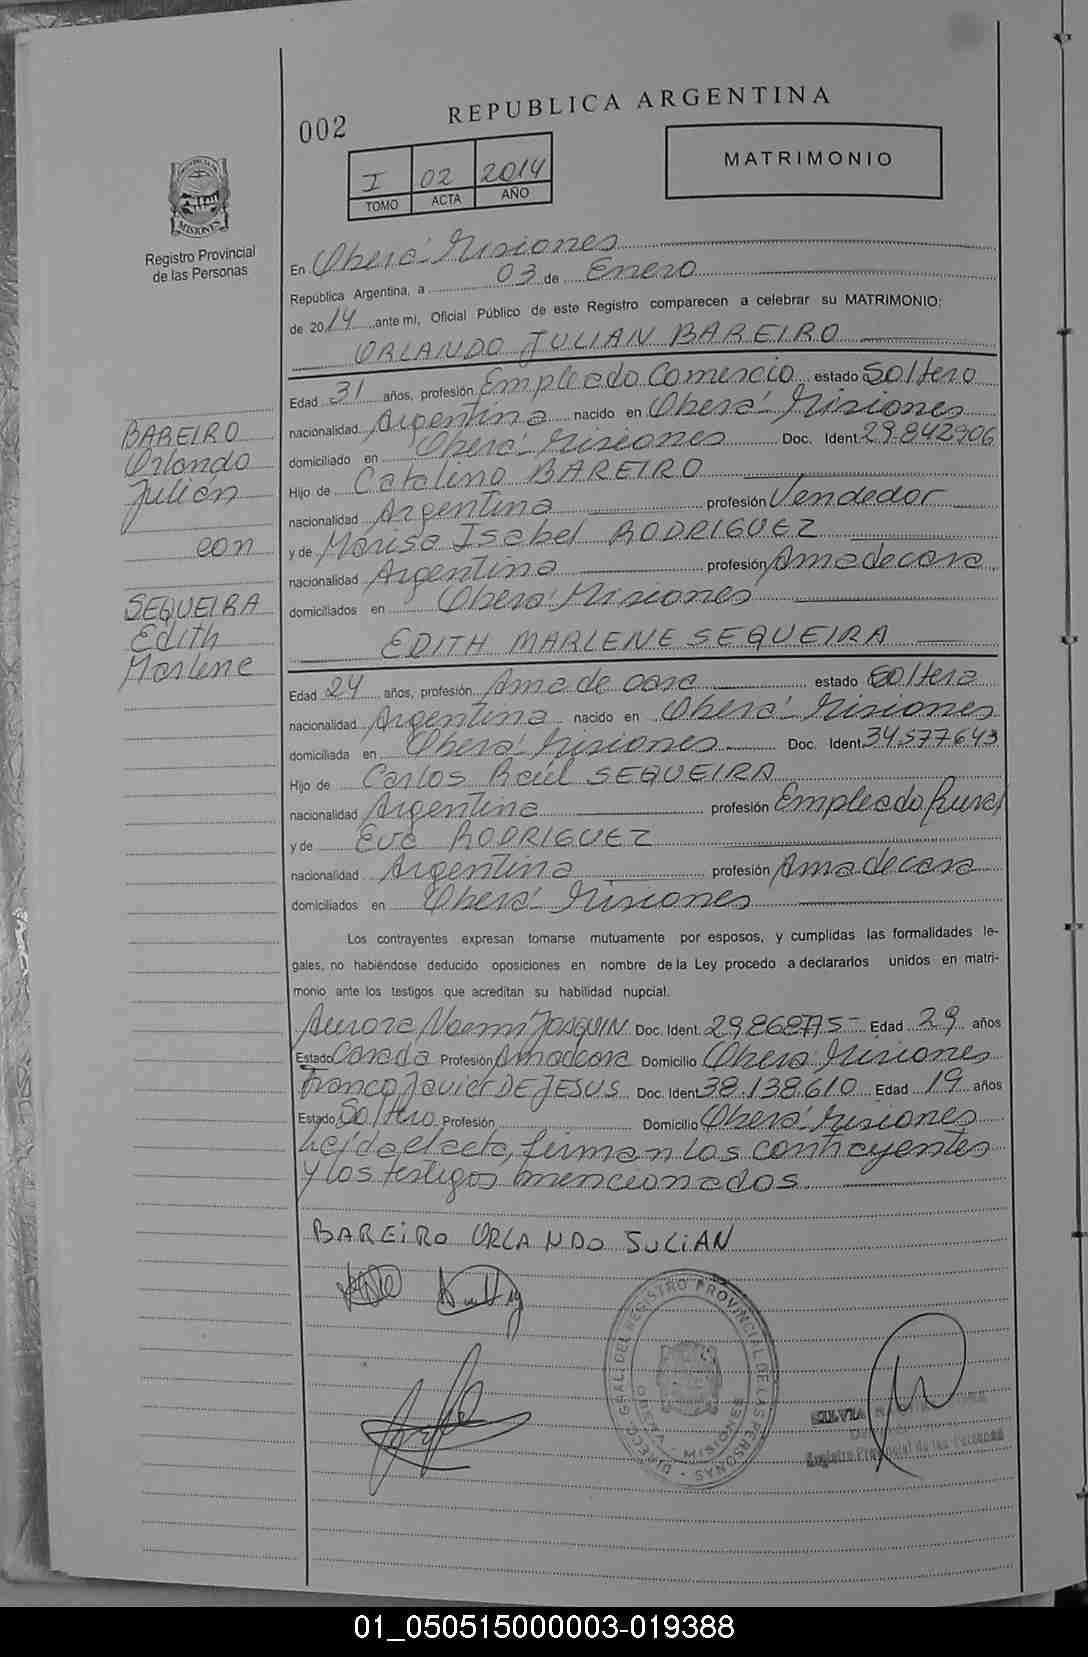 002
REPUBLICA ARGENTINA
MATRIMONIO
I 02 2014
TOMO ACTA AÑO
PROVINCIA DE MISIONES
Registro Provincial
de las Personas
En Oberá - Misiones
República Argentina, a 03 de Enero
de 2014 ante mi, Oficial Público de este Registro comparecen a celebrar su MATRIMONIO:
ORLANDO JULIAN BAREIRO
Edad 31 años, profesión Empleado Comercio estado Soltero
nacionalidad Argentina nacido en Oberá - Misiones
domiciliado en Oberá - Misiones Doc. Ident 29.842906
Hijo de Catalino BAREIRO
nacionalidad Argentina profesión Vendedor
y de Marisa Isabel RODRIGUEZ
nacionalidad Argentina profesión Ama de casa
domiciliados en Oberá - Misiones
BAREIRO
Orlando
Julián
con
SEQUEIRA
Edith
Marlene
EDITH MARLENE SEQUEIRA
Edad 24 años, profesión Ama de casa estado Soltera
nacionalidad Argentina nacido en Oberá - Misiones
domiciliada en Oberá - Misiones Doc. Ident. 34.577643
Hijo de Carlos Raúl SEQUEIRA
nacionalidad Argentina profesión Empleado Rural
y de Eva RODRIGUEZ
nacionalidad Argentina profesión Ama de casa
domiciliados en Oberá - Misiones
Los contrayentes expresan tomarse mutuamente por esposos, y cumplidas las formalidades le-
gales, no habiéndose deducido oposiciones en nombre de la Ley procedo a declararlos unidos en matri-
monio ante los testigos que acreditan su habilidad nupcial.
Aurora Noemi JOAQUIN Doc. Ident. 29.868775 - Edad 29 años
Estado Casada Profesión Ama de casa Domicilio Oberá - Misiones
Franco Javier DE JESUS Doc. Ident 38.138.610 Edad 19 años
Estado Soltero Profesión Domicilio Oberá - Misiones
Leída el acta, firman los contrayentes
y los testigos mencionados.
BAREIRO ORLANDO JULIAN
DIRECC. GRAL. DEL REGISTRO PROVINCIAL DE LAS PERSONAS
OBERA - MISIONES
SILVIA
Registro Provincial de las Personas
01_050515000003-019388